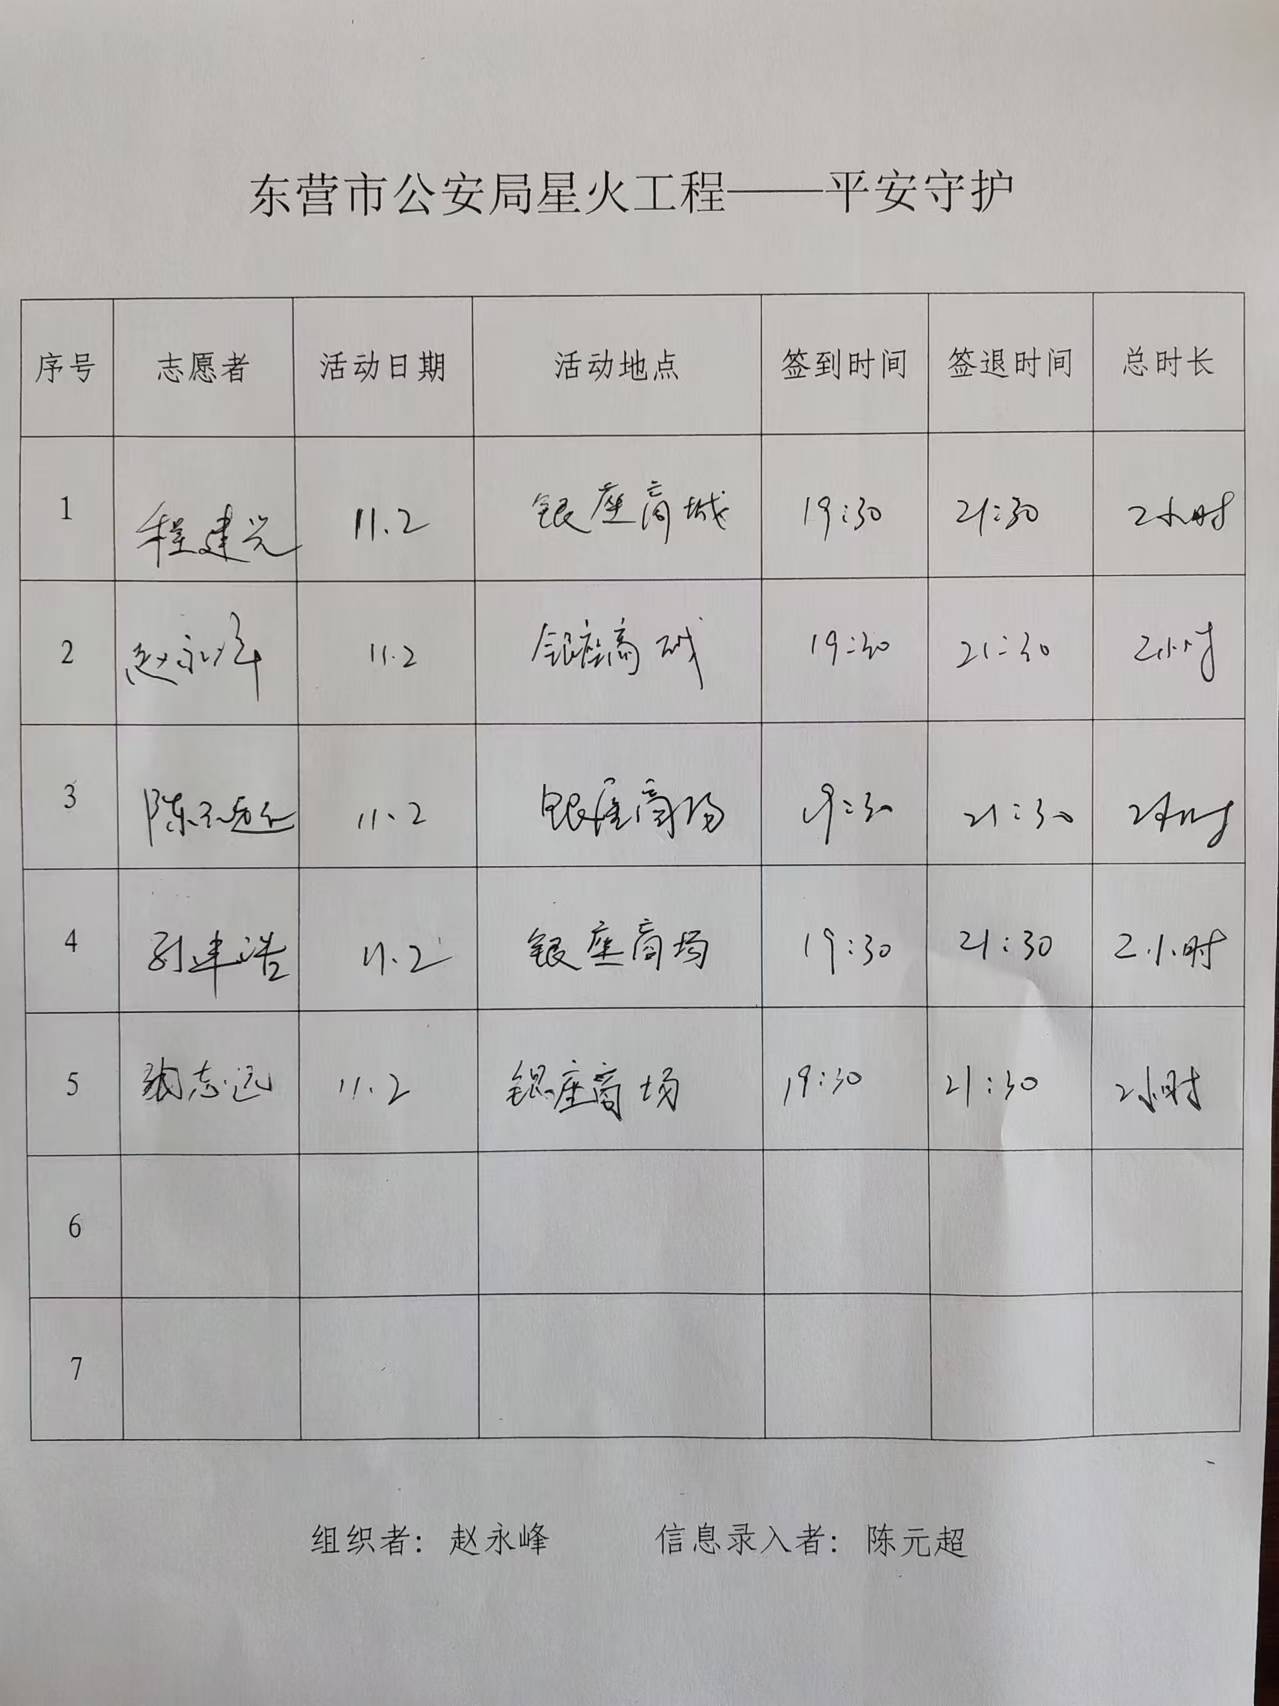 东营市公安局星火工程——平安守护
序号 志愿者 活动日期 活动地点 签到时间 签退时间 总时长
1 程建光 11.2 银座商城 19:30 21:30 2小时
2 赵永峰 11.2 银座商城 19:30 21:30 2小时
3 陈元超 11.2 银座商场 19:30 21:30 2小时
4 孙建浩 11.2 银座商场 19:30 21:30 2小时
5 张志远 11.2 银座商场 19:30 21:30 2小时
6
7
组织者：赵永峰 信息录入者：陈元超